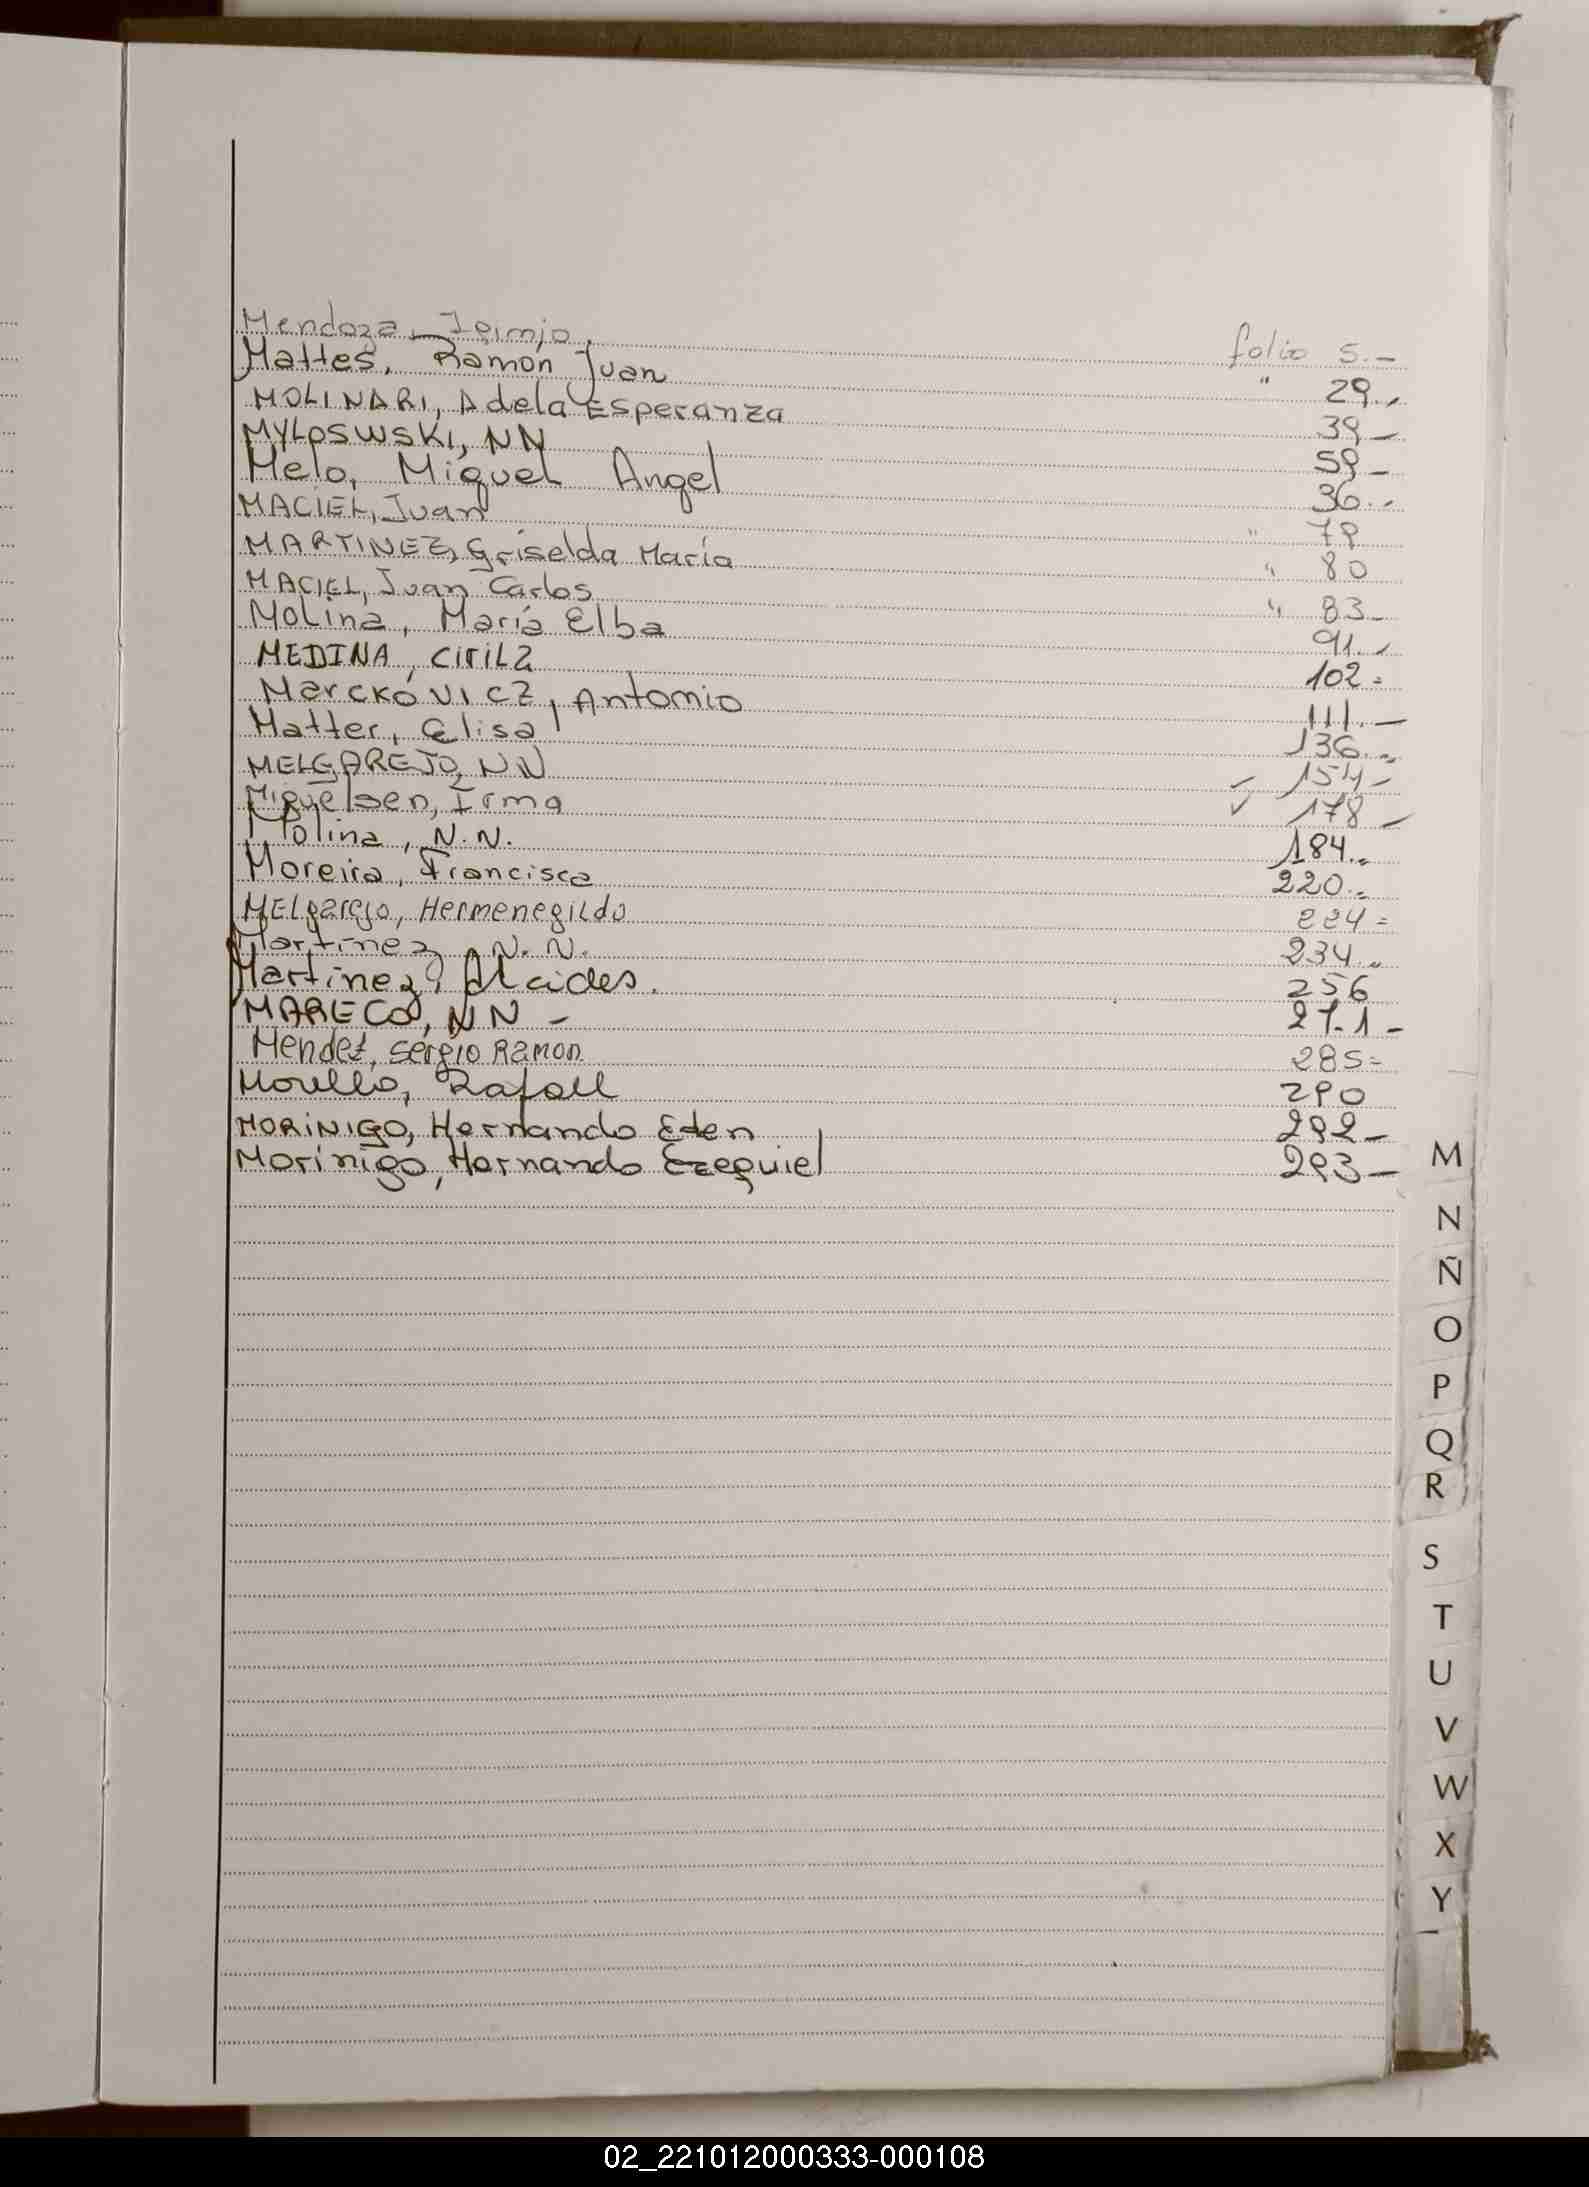 Mendoza, Igimio folio 5.-
Mattes, Ramón Juan " 29.-
MOLINARI, Adela Esperanza 39-
MYLOSWSKI, NN 59-
Melo, Miguel Angel 36.-
MACIEL, Juan " 79
MARTINEZ, Griselda María " 80
MACIEL, Juan Carlos " 83-
Molina, María Elba 91.-
MEDINA, CIRILA 102=
Marckóvicz, Antonio 111.-
Matter, Elisa 136.-
MELGAREJO, NN ✓ 154-
Miguelsen, Irma ✓ 178-
Molina, N.N. 184.-
Moreira, Francisca 220.-
MELgarejo, HERMENEgILDO 224=
Martinez N.N. 234.-
Martinez, Alcides. 256
MARECO, NN - 271-
Mendez, Sergio Ramon 285=
Morello, Rafael 290
MORINIGO, Hernando Eden 292-
Morinigo, Hernando Ezequiel 293-
M
N
Ñ
O
P
Q
R
S
T
U
V
W
X
Y
02_221012000333-000108